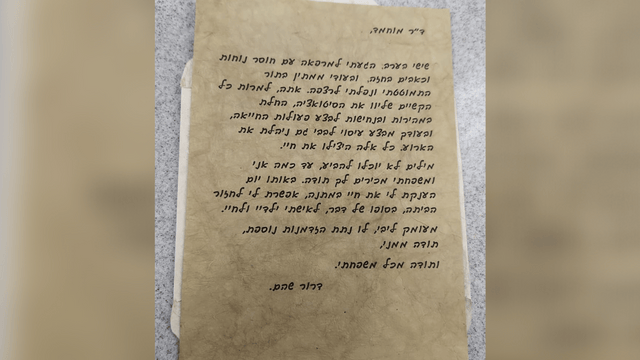 ד"ר מוחמד,
שישי בערב. הגעתי למרפאה עם חוסר נוחות
וכאבים בחזה. ובעודי ממתין בתור
התמוטטתי ונפלתי לרצפה. אתה, למרות כל
הקשיים שליוו את הסיטואציה, החלת
במהירות ובנחישות לבצע פעולות החייאה,
ובעודך מבצע עיסוי לבבי גם ניהלת את
הארוע. כל אלה הצילו את חיי.
מילים לא יוכלו להביע, עד כמה אני
ומשפחתי מכירים לך תודה. באותו יום
הענקת לי את חיי במתנה, אפשרת לי לחזור
הביתה, בסופו של דבר, לאישתי ילדיי ולחיי.
מעומק ליבי, לו נתת הזדמנות נוספת,
תודה ממני,
ותודה מכל משפחתי.
דרור שהם.